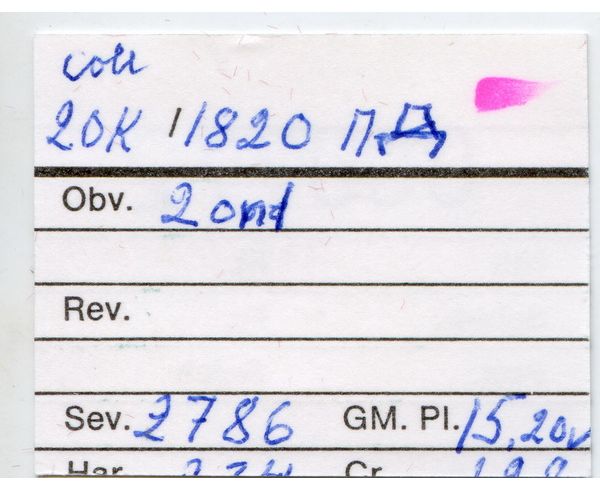 coll
20K 1820 П.Д
Obv. 2 ond
Rev.
Sev. 2786 GM. Pl. 15,20v
Har. Cr.